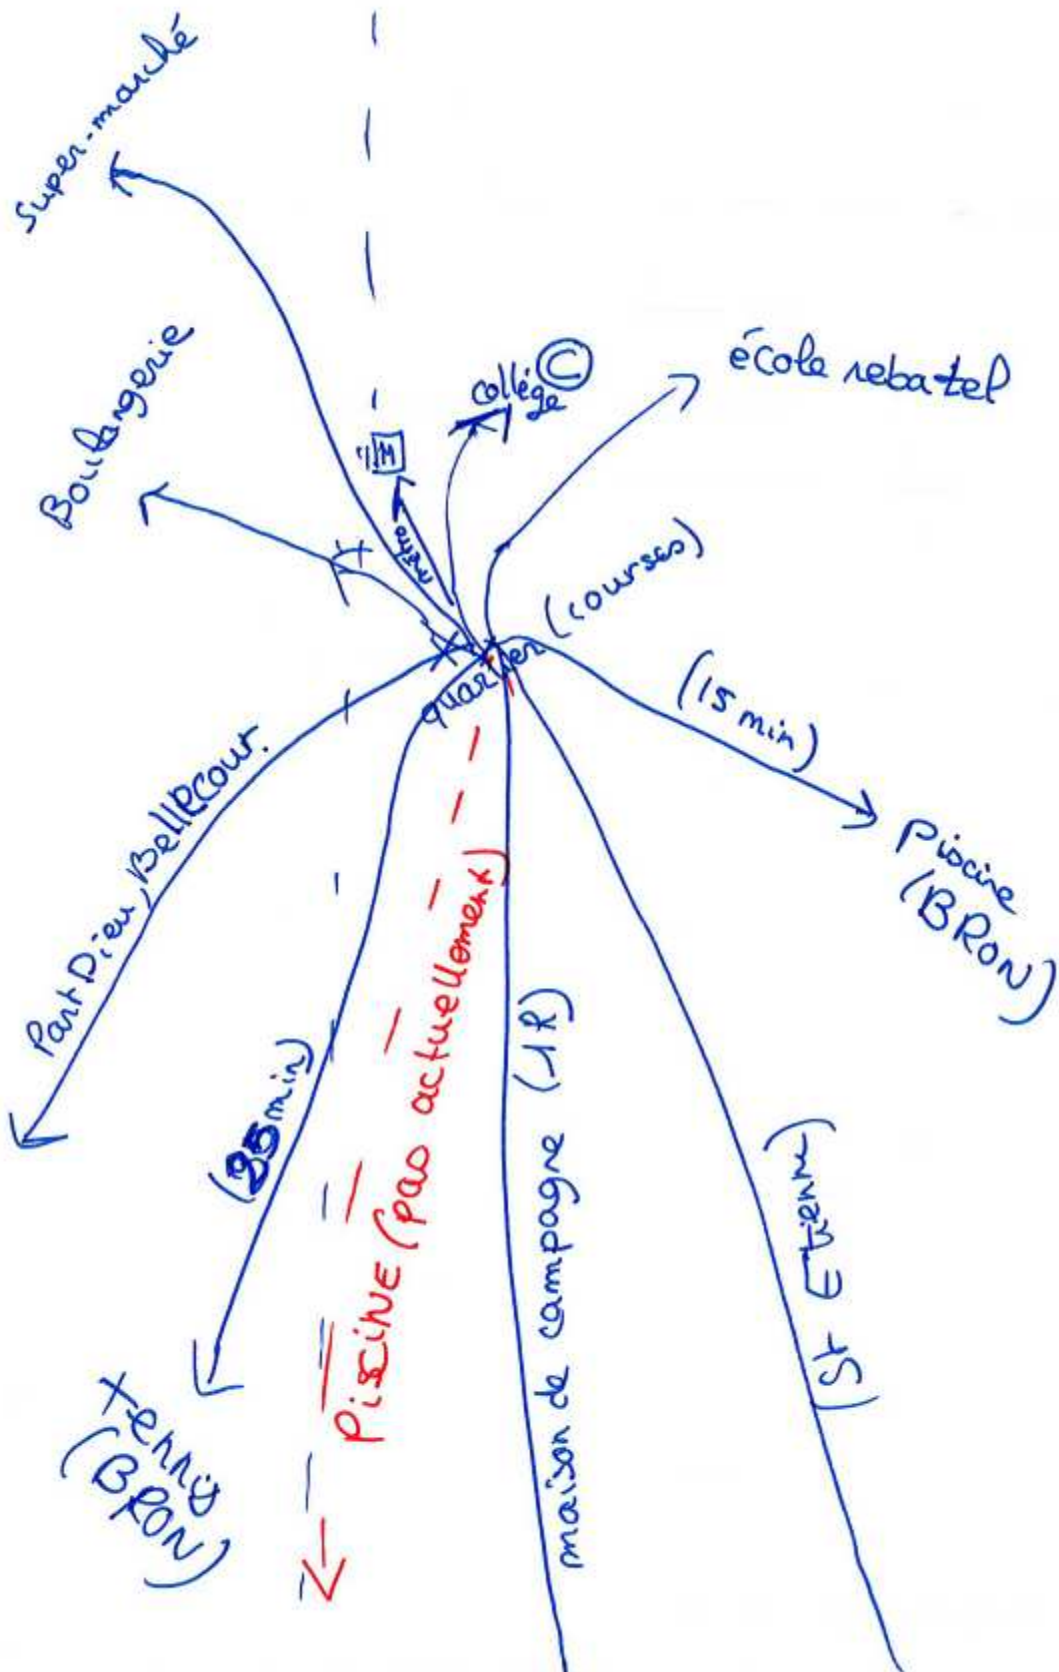 Super-marché
Boulangerie
M
métro
collège
C
école rebatel
quartier (courses)
(15 min)
Piscine
(BRON)
Part Dieu, Bellecour.
(35 min)
tennis
(BRON)
PisciNE (pas actuellement)
maison de campagne (1R)
(St Etienne)